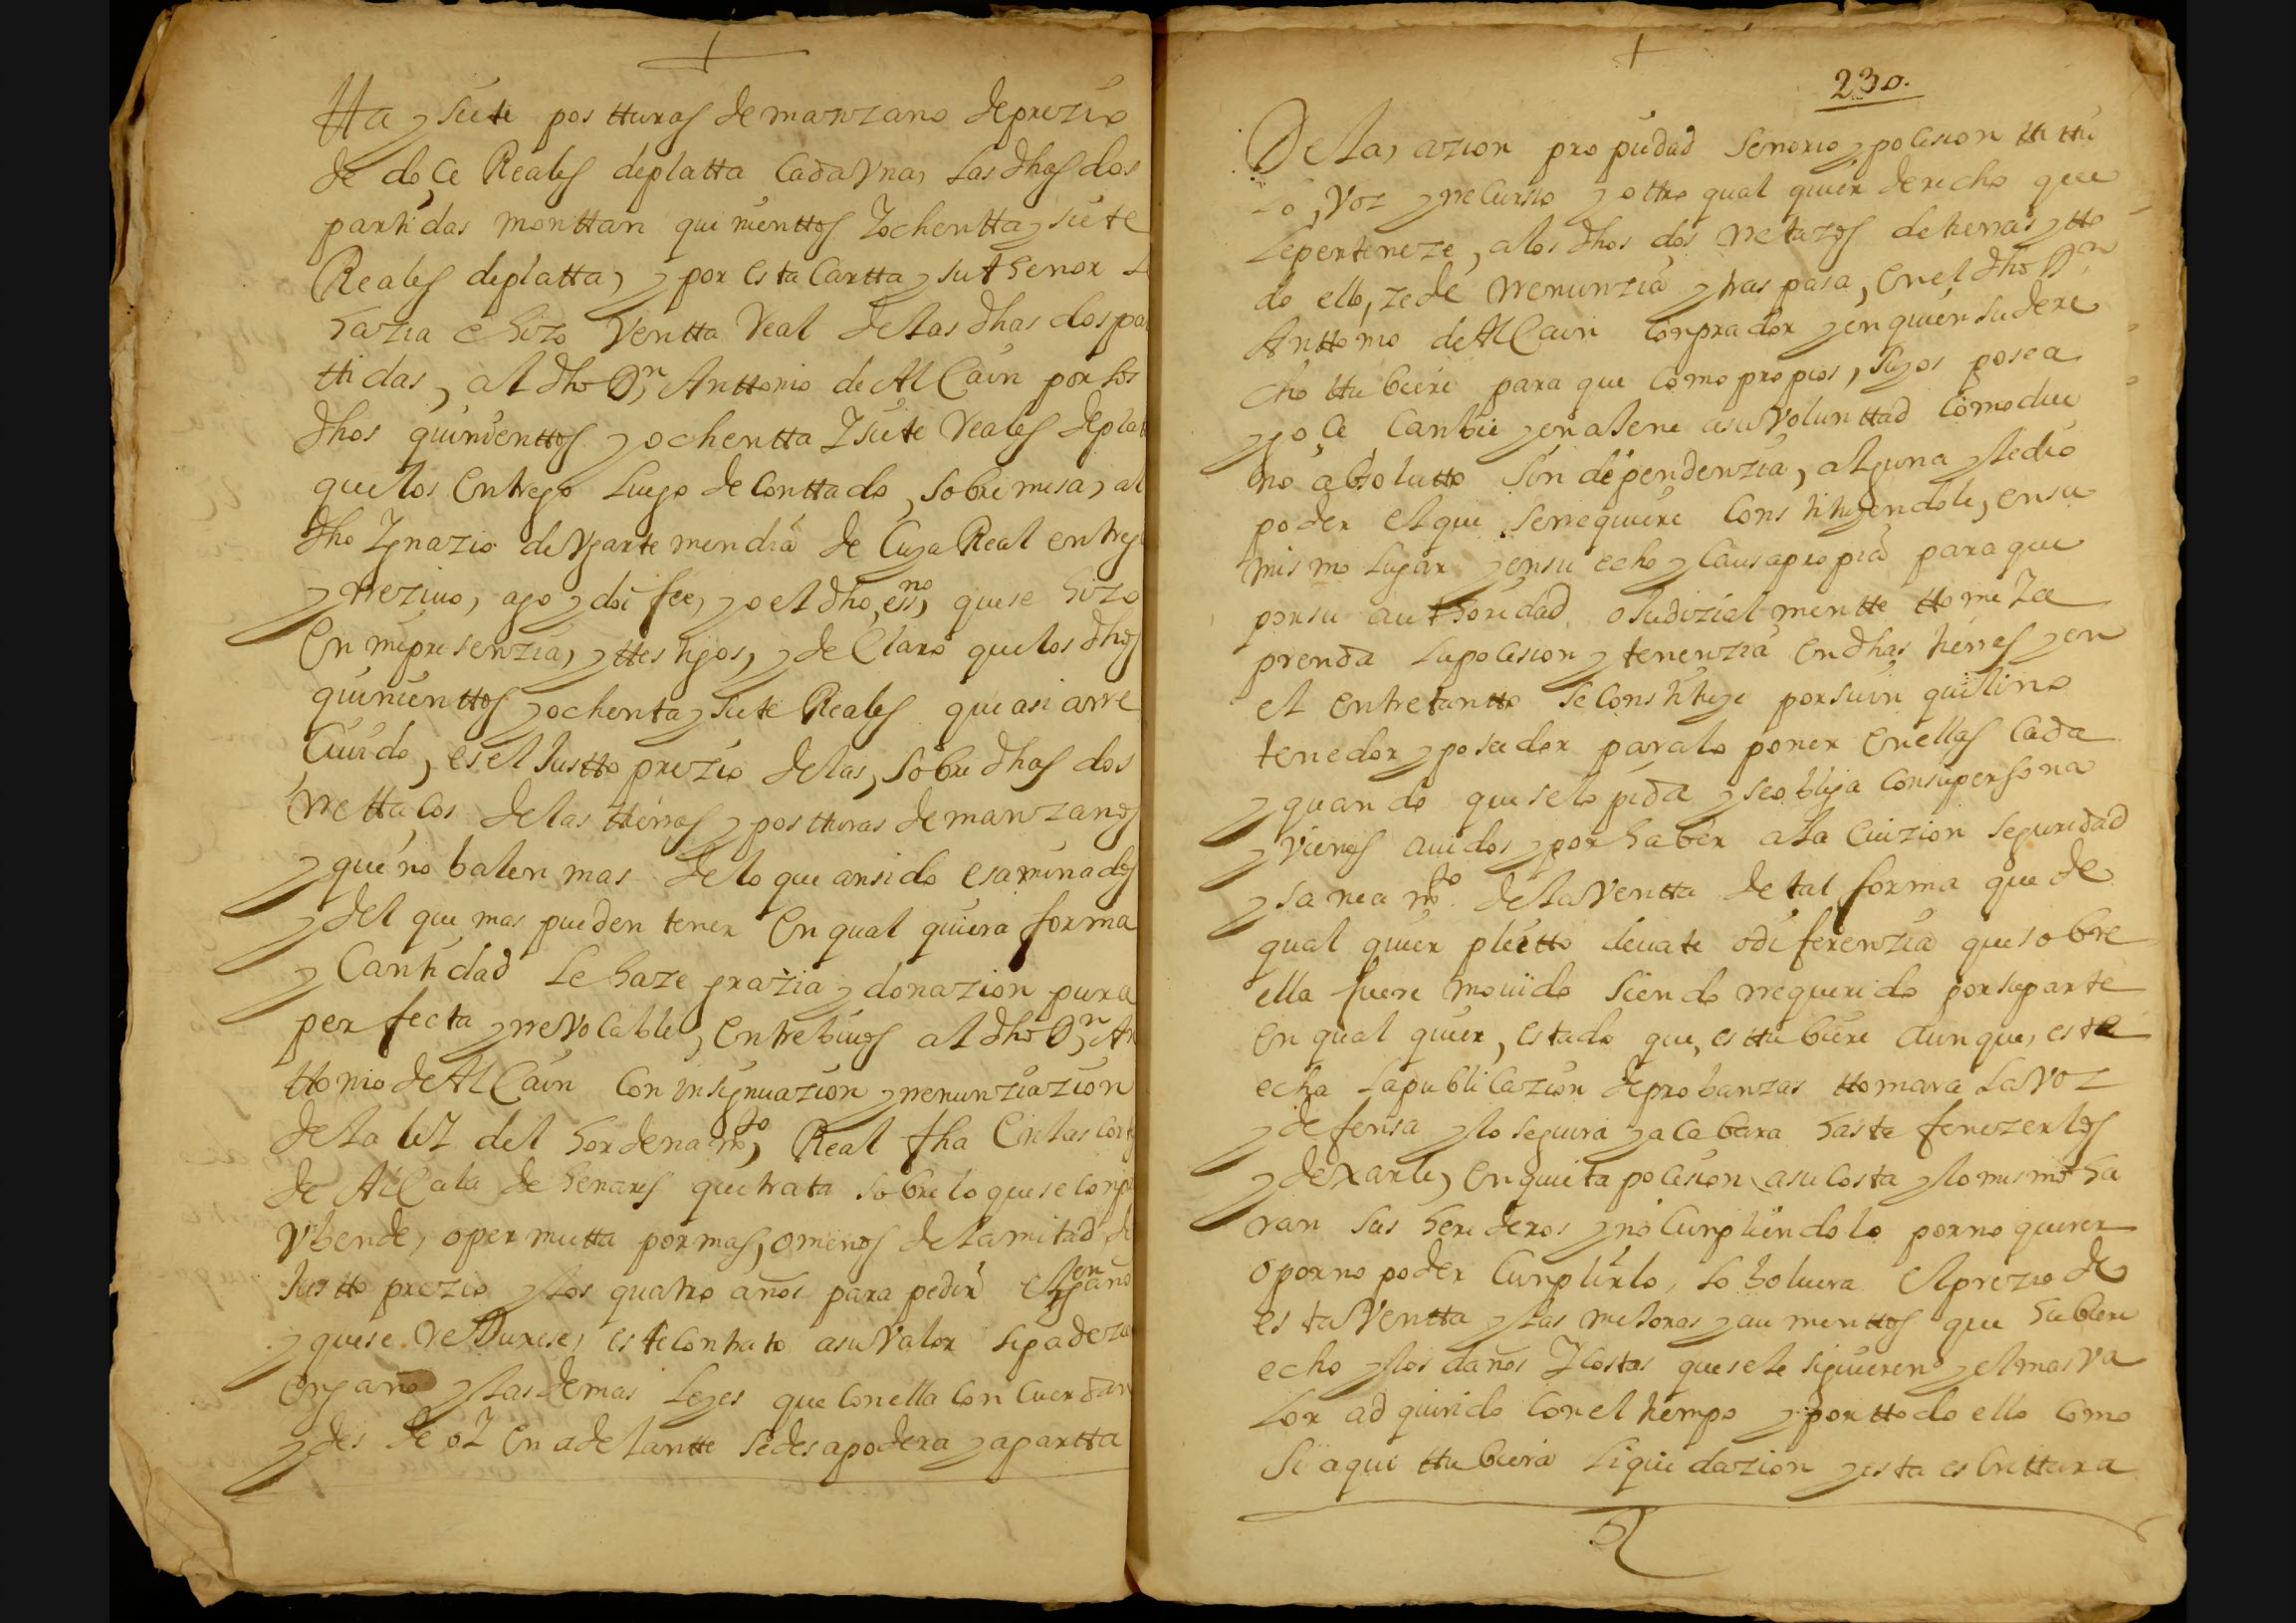 tta y siete postturas de manzano de prezio
de doce Reales de platta cada vna, las dhas dos
partidas monttan quinienttos Y ochentta y siete
Reales de platta, y por esta Cartta y su thenor
hazia e hizo Ventta Real de las dhas dos par
ttidas, al dho Dn Anttonio de Al Cain por los
dhos quinienttos y ochentta Y siete Reales de plat
que los Entrego luego de Conttado, sobre mesa, al
dho Ygnazio de Vgartemendia de Cuya Real entreg
y rrezivo, ajo y doi fee, yo el dho essno, que se hizo
En mi presenzia, y ttestigos, y de Claro que los dhos
quinienttos y ochenta y siete Reales que asi a rre
Ciuido, es el Justto prezio de las, sobre dhas dos
rrettaços de las ttierras y postturas de manzanos
y que no balen mas de lo que an sido esaminados
y del que mas pueden tener En qual quiera forma
y Cantidad le haze grazia y donazion pura
perfecta yrreVocable, Entre biuos al dho Dn An
ttonio de Al Cain Con insignuazion y rrenunziazion
de la leY del hordenamto, Real fha En las cortes
de AlCala de henares que trata sobre lo que se conpr
Vbende, o permutta por mas, o menos de la mitad de
Justto prezio y los quatro años para pedir el engaño
y que se ReDuxese, este contrato a su Valor si padezi
Engaño y las demas leyes que Con ella Con Cuerdan
y des de oY En adelantte se desapodera y apartta
230.
De la, azion propiedad señorio y posesion titu
lo, Voz y rrecurso y ottro qual quier derecho que
le perteneze, a los dhos dos rretazos de tierras y tto
do ello, zede rrenunzia y traspasa, En el dho Dn
Anttonio de Al Cain Conprador y en quien su dere
cho ttubiere para que como propios, suyos posea
y goce Canbie y enajene a su Voluntad como due
ño absolutto sin dependenzia, alguna y le dio
poder el que se rrequiere Constituyendole, en su
mismo lugar y en su echo y Causa propia para que
por su authoridad o Judizialmentte ttome Ya
prenda la posesion y tenenzia En dhas tierras y en
el Entretantto se Constituye por su in quilino
tenedor y posedor para lo poner En ellas Cada
y quando que se lo pida y se obliga Con su persona
y vienes auidos y por haber a la Euizion seguridad
y saneamto de la Ventta de tal forma que de
qual quier pleitto devate o diferenzia que sobre
ella fuere mouido siendo rrequerido por su parte
En qual quier, estado que, esttubiere aunque, este
echa la publicazion de probanzas ttomara la Voz
y defensa y lo seguira y acabara hasta fenezerlos
y dexarle, En quieta posesion a su Costa y lo mismo ha
ran sus herederos y no Cunpliendolo por no querer
o por no poder Cunplirlo, lo bolvera El prezio de
esta Ventta y las mejoras y aumenttos que hubiere
echo y los daños Y costas que se le siguieren y el mas va
lor ad quirido Con el tiempo y por ttodo ello como
Si aqui ttubiera liquidazion y esta escrittura